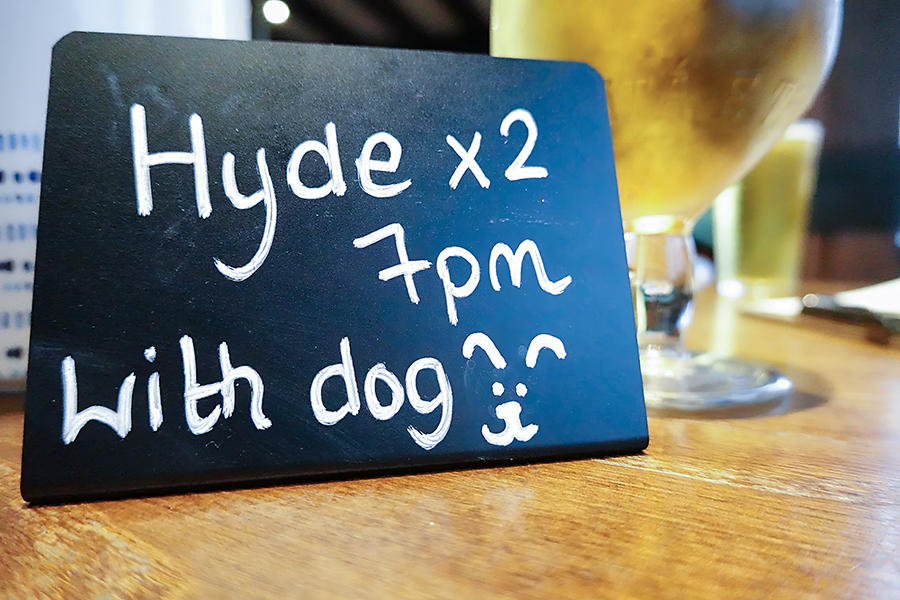 Hyde x2
7pm
with dog